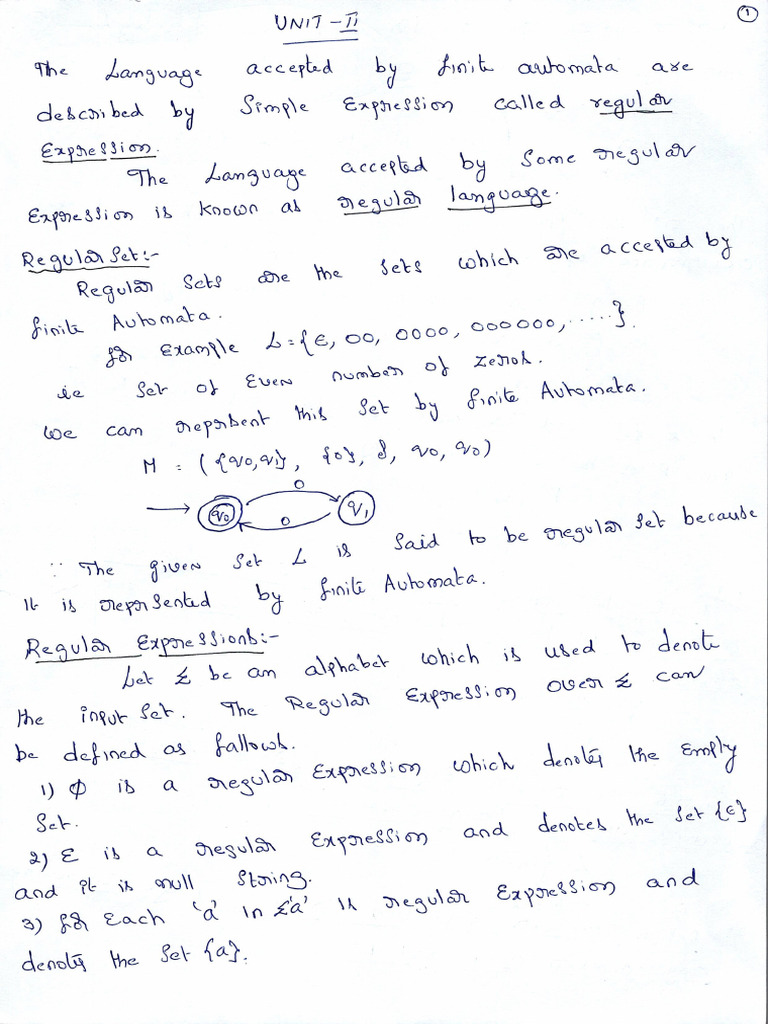 1
UNIT - II
The Language accepted by finite automata are
described by Simple Expression called regular
Expression.
The Language accepted by Some regular
Expression is known as regular language.
Regular Set:-
Regular Sets are the sets which are accepted by
finite Automata.
for Example L = {ε, 00, 0000, 000000, .....}.
ie Set of Even number of zeros.
We can reprsent this Set by finite Automata.
M = ({q0,q1}, {0}, δ, q0, q0)
0
q0 q1
0
∵ The given Set L is said to be regular set because
It is reprsented by finite Automata.
Regular Expressions:-
Let Σ be an alphabet which is used to denote
the input Set. The Regular Expression over Σ can
be defined as fallows.
1) ϕ is a regular Expression which denotes the Empty
Set.
2) Ɛ is a regular Expression and denotes the Set {ε}
and it is null String.
3) for Each 'a' in Σ 'a' is regular Expression and
denotes the Set {a}.